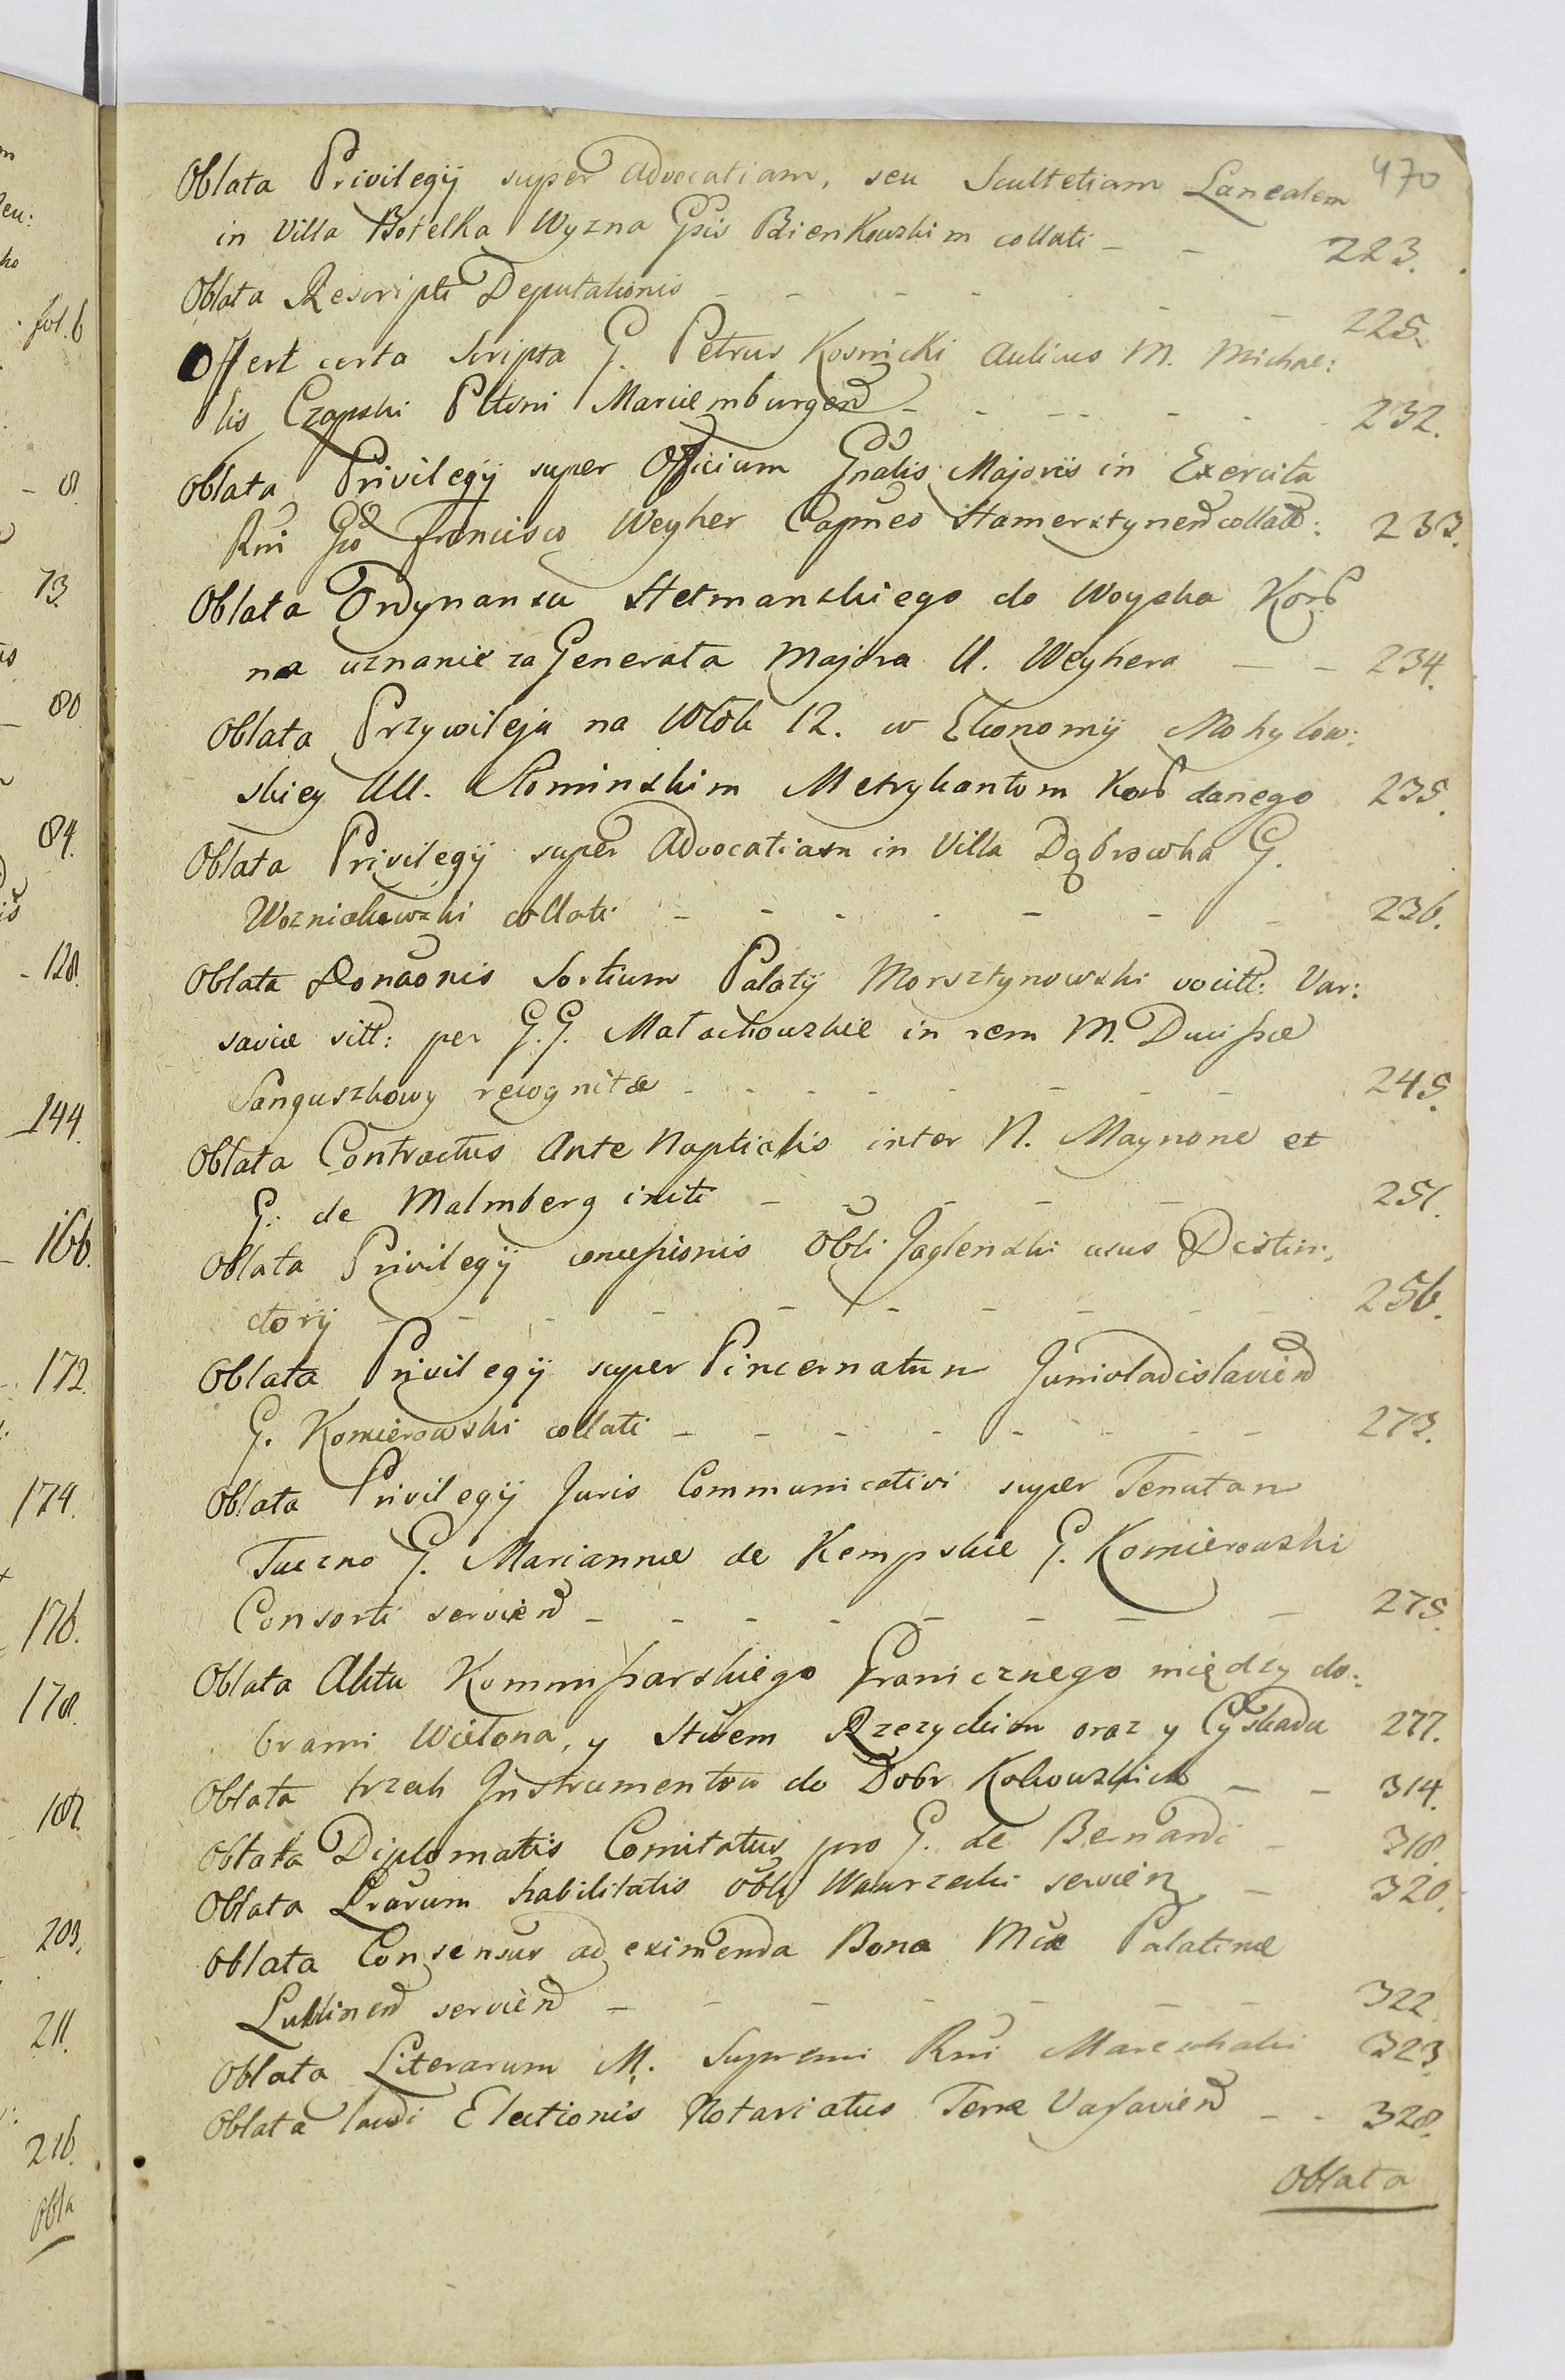 m
leu:
ko
fol. 6
- 8.
73.
is
80
84.
is
- 128.
144.
- 166.
172.
174.
176.
178.
187.
203.
211.
216.
Obla
470
Oblata Privilegij super Advocatiam, seu Scultetiam Lanealem
in Villa Botelka Wyzna Gsis Bienkowskim collati - - 223.
Oblata Rescripti Deputationis - - - - - - 225.
Offert certa Scripta G. Petrus Kosnicki Aulicus M. Michae:
lis Czapski Pttni Mariemburgen - - - - - 232.
Oblata Privilegij super Officium Gnalis Majoris in Exercitu
Rni Gso Francisco Weyher Capneo Hamersztynen collat: 233.
Oblata Ordynansu Hetmanskiego do Woyska Kor
na uznanie za Generała Majora U. Weyhera - - 234.
Oblata Przywileju na Włók 12. w Ekonomij Mohylow:
skiey UU. Słominskim Metrykantom Kor danego 235.
Oblata Privilegij super Advocatiam in Villa Dąbrowka G.
Wozniakowski collati - - - - - - - 236.
Oblata Donaonis Sortium Palatij Morsztynowski vocitt: Var:
saviæ sitt: per G.G. Małachowskie in rem M. Ducissæ
Sanguszkowy recognitæ - - - - - - - 245.
Oblata Contractus Ante Nuptialis inter N. Maynone et
G. de Malmberg initi - - - - - 251.
Oblata Privilegij concessionis Obli Jaglenski usus Distin:
ctorij - - - - - - - - - 256.
Oblata Privilegij super Pincernatum Junivladislavien
G. Komierowski collati - - - - - - - 273.
Oblata Privilegij Juris Communicativi super Tenutam
Tuczno G. Mariannæ de Kempskie G. Komierowski
Consorti servien - - - - - - - - 275.
Oblata Aktu Kommissarskiego Granicznego między do:
brami Wielona, y Stwem Rzezyckim oraz y 277.
Oblata trzech Instrumentow do Dobr Kołkowskich - - 314.
Oblata Diplomatis Comitatus pro G. de Bernardi - 318.
Oblata Lrarum habilitatis Obli Wawrzecki servien - 320.
Oblata Consensus ad eximenda Bona Mcæ Palatinæ
Lublinen servien - - - - - - - 322
Oblata Literarum M. Supremi Rni Mareschalci 323
Oblata laudi Electionis Notariatus Terræ Varsavien - - 328.
Oblata